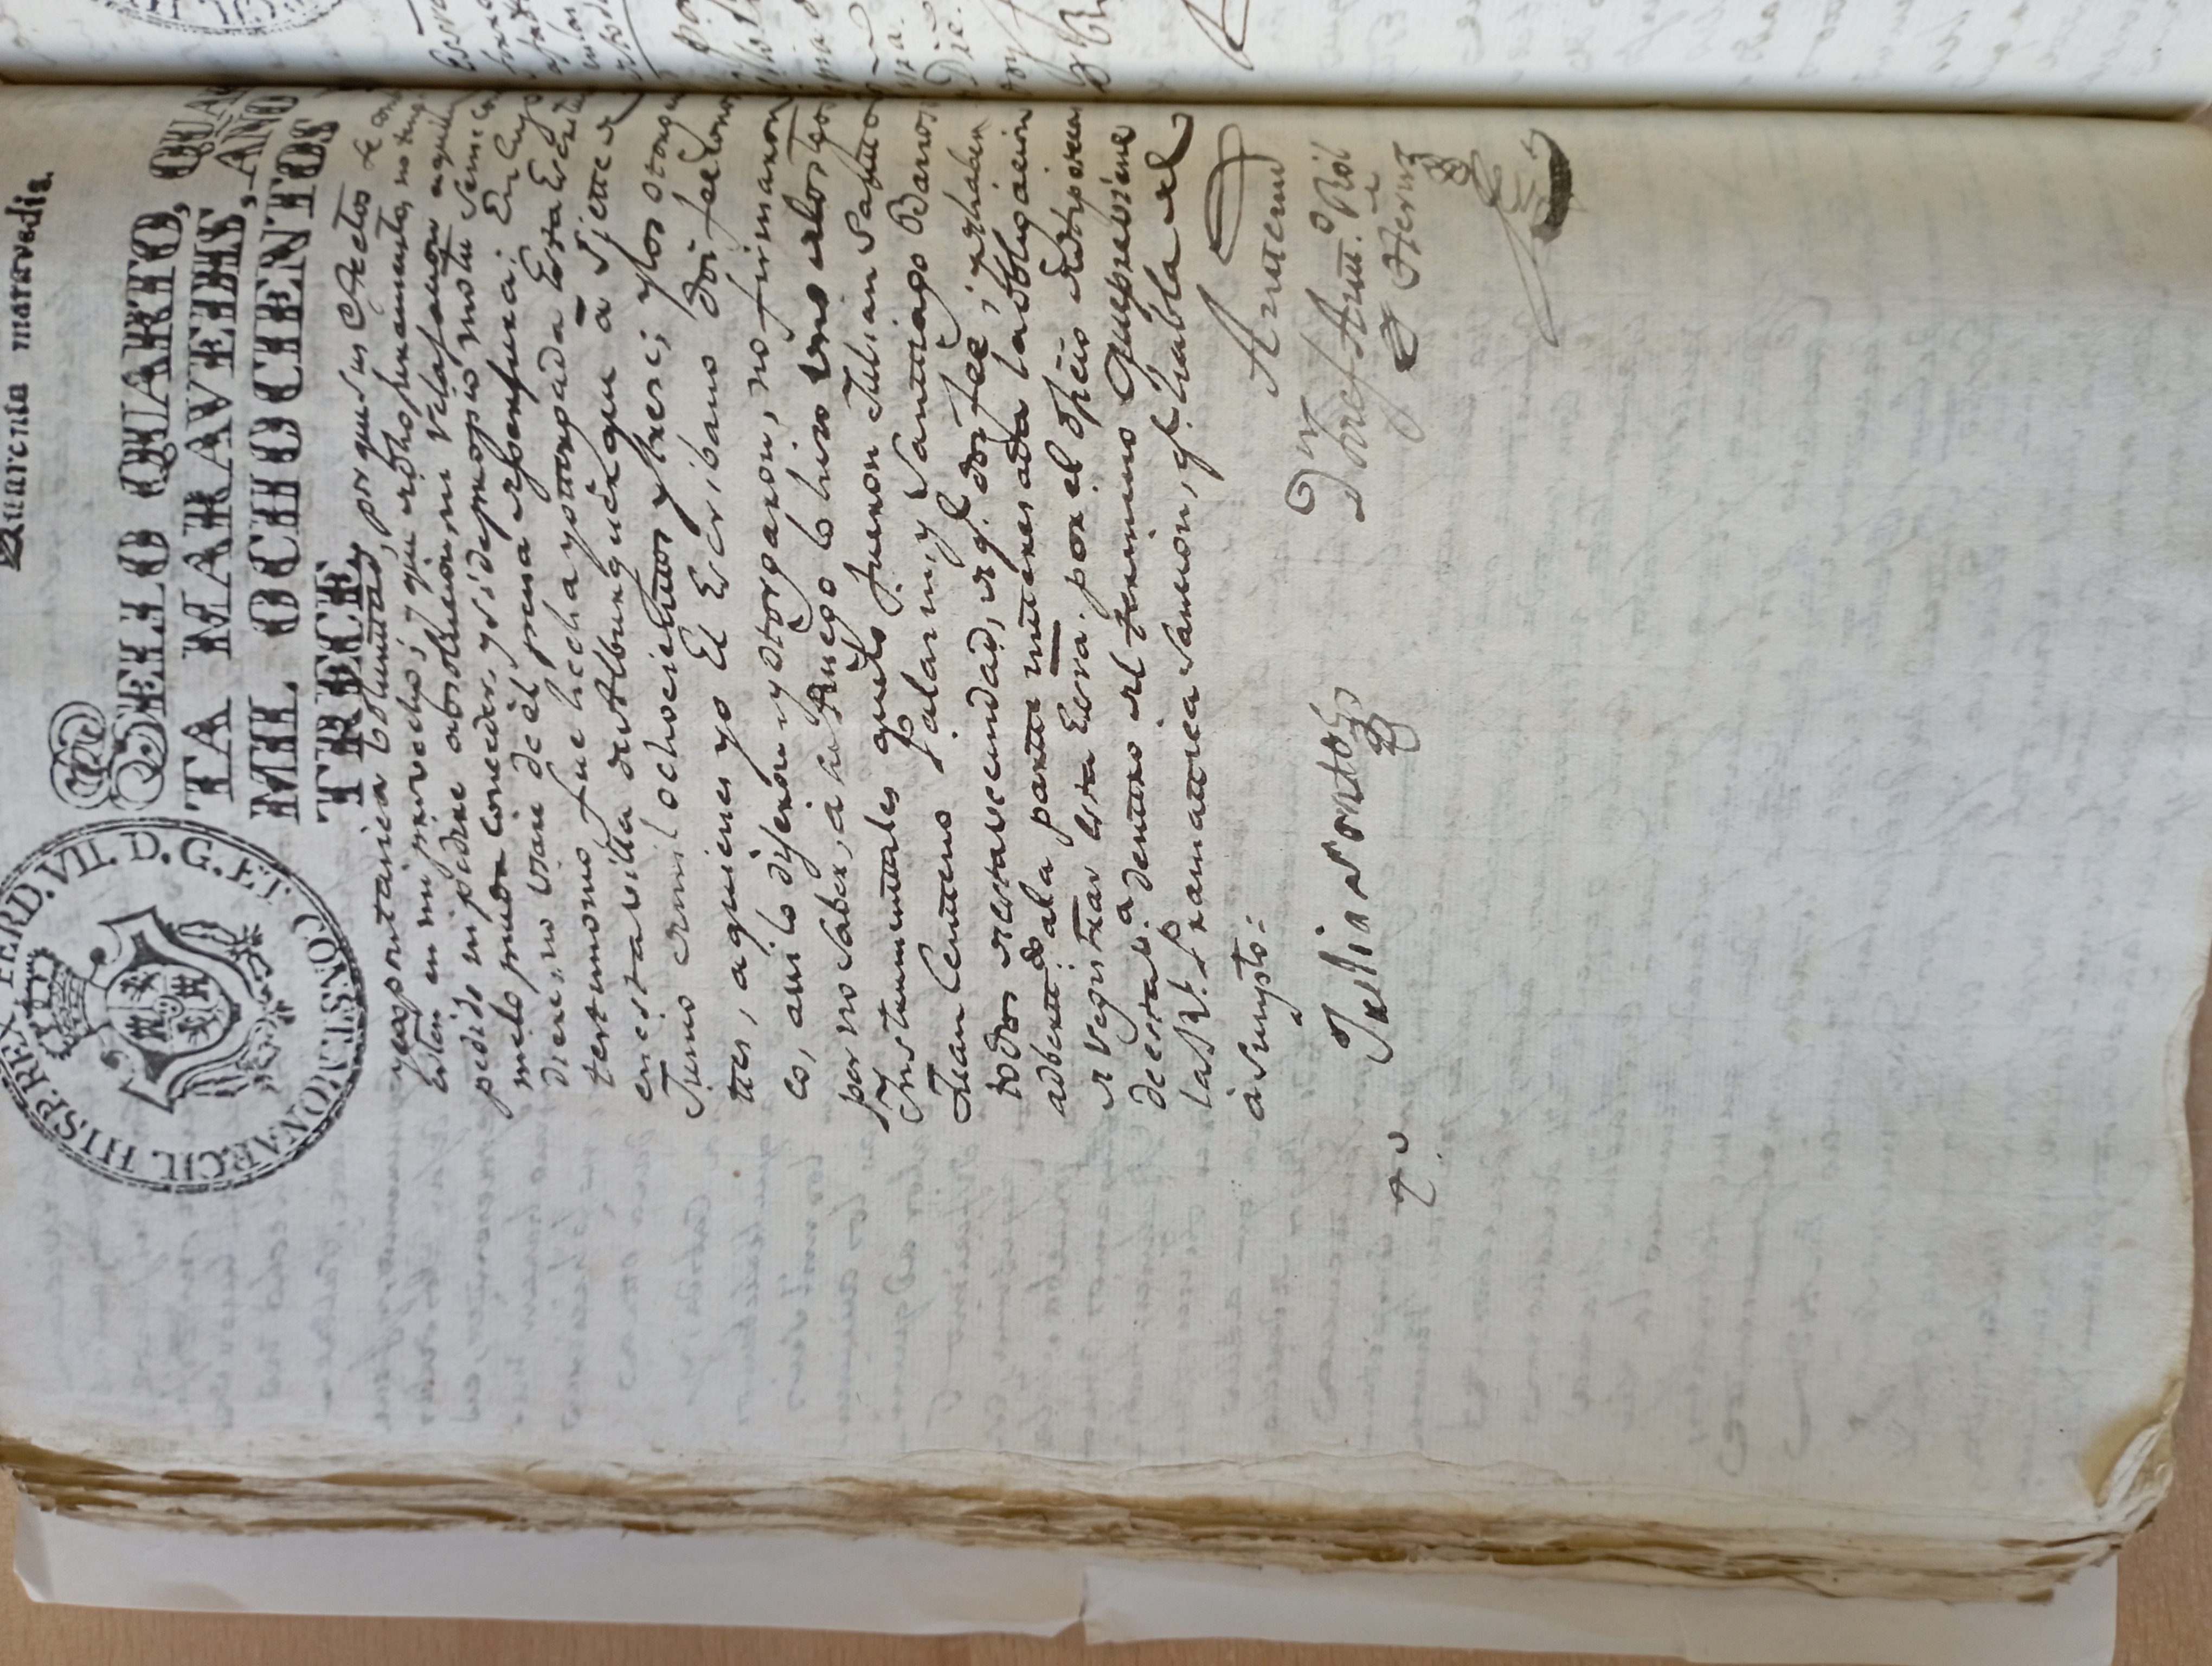 Quarenta maravedis.
HISP. REX FERD. VII. D. G. ET CONST. MONARCH.
SELLO QUARTO, QUA
TA MARAVEDIS, AÑO
MIL OCHOCIENTOS
TRECE
y expontanica boluntad, por que sus efectos se con
esten en mi provecho; y que de dho juramento, no teng
pedido ni pedire absolucion, ni relajacion a quien
melo pueda conceder, y si de propio motu seme con
diere, no usare de el pena de perjura: En cuyo
testimonio, fue hecha y otorgada Esta Escritu
en esta villa de Alburquerque à Siette de
Junio de mil ochocienttos y trese; y los otorgan
ttes, a quienes yo El Escribano doi fee cono
co, assi lo dijeron y otorgaron, no firmaron
por no saber, à su Ruego lo hizo uno de los tgos
Instrumenttales que lo fueron Julian Santto
Juan Centteno Palarin, y Santtiago Barros
todos de esta vecindad, de q.e doi fee; y de haber
adbertt.do ala partte intteresada la obligacion
de registrar esta Escrâ. por el ofìcio de Hipotecas
de esta v.a denttro del termino que previene
la Rl. Pramattica Sancion, q.e habla del
àsumpto:
Antte mi
Julian Santos
Dn Josef Antt.o Rol